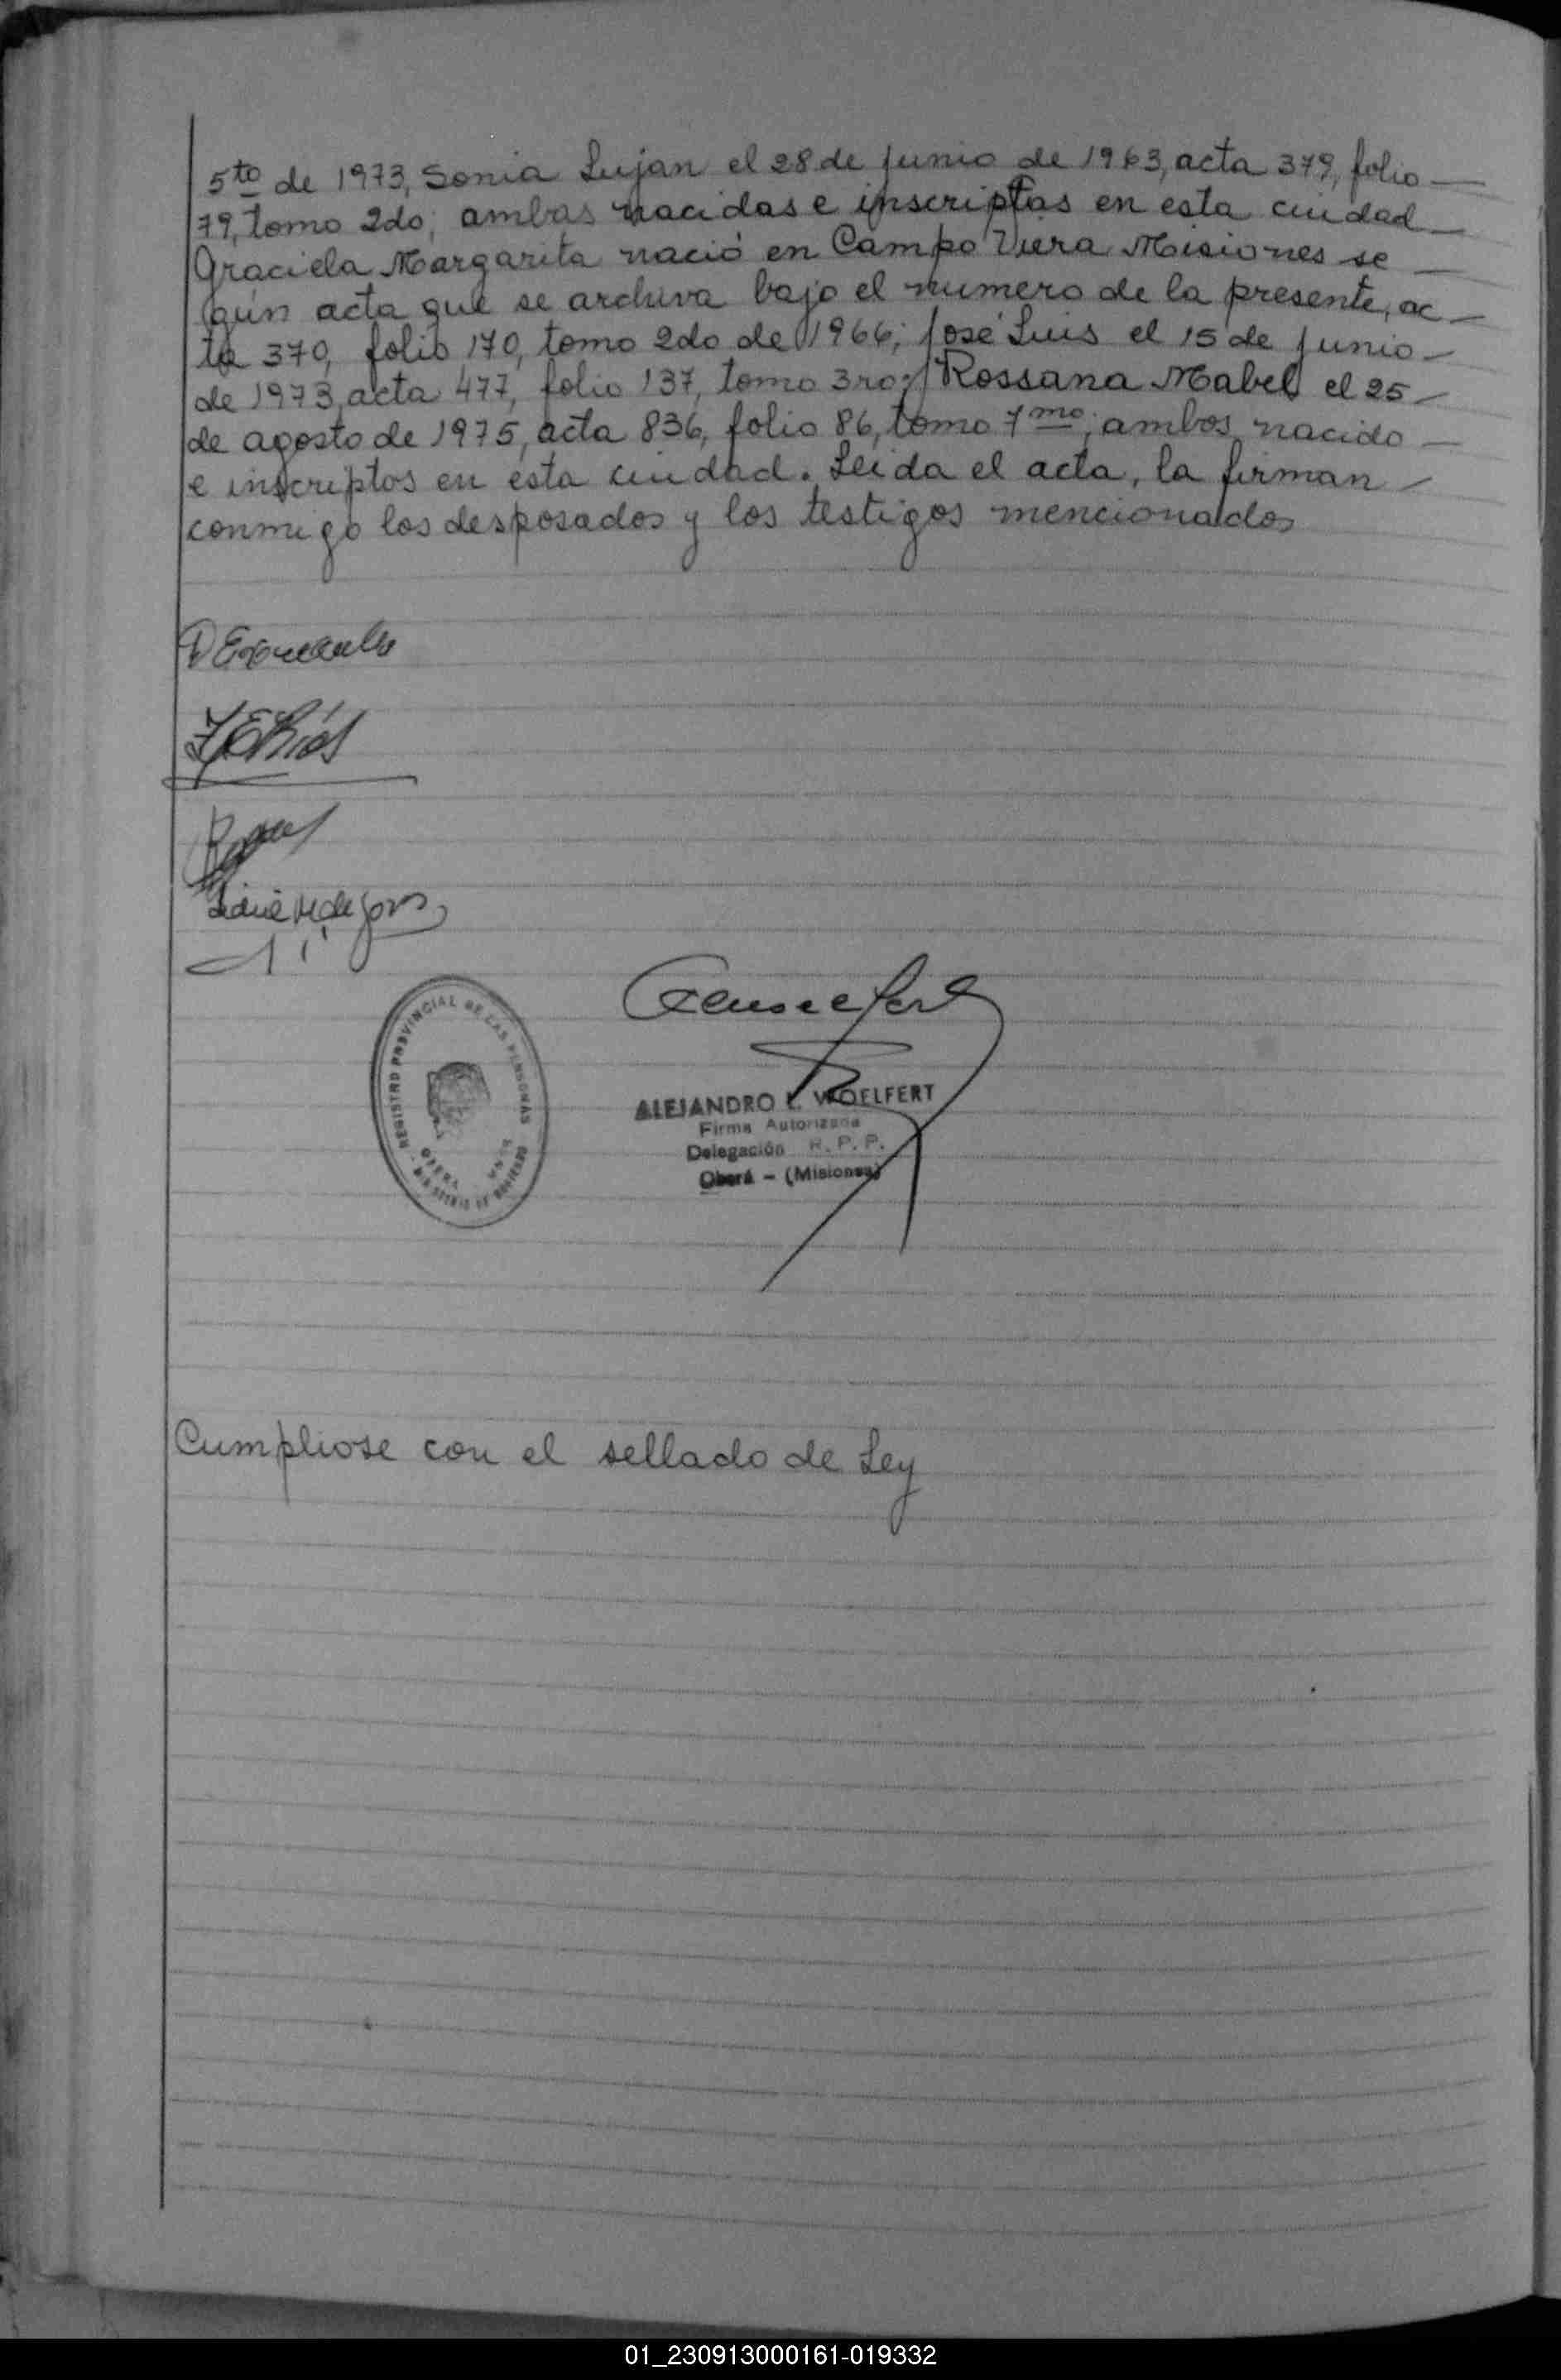 5to de 1973, Sonia Lujan el 28 de junio de 1963, acta 379, folio —
79, tomo 2do; ambas nacidas e inscriptas en esta ciudad —
Graciela Margarita nació en Campo Viera Misiones se —
gún acta que se archiva bajo el numero de la presente, ac —
ta 370, folio 170, tomo 2do de 1966; José Luis el 15 de junio —
de 1973, acta 477, folio 137, tomo 3ro; Rossana Mabel el 25 —
de agosto de 1975, acta 836, folio 86, tomo 7mo; ambos nacido —
e inscriptos en esta ciudad. Leida el acta, la firman —
conmigo los desposados y los testigos mencionados
REGISTRO PROVINCIAL DE LAS PERSONAS
ALEJANDRO L. WOELFERT
Firma Autorizada
Delegación R. P. P.
Oberá - (Misiones)
Cumpliose con el sellado de Ley
01_230913000161-019332